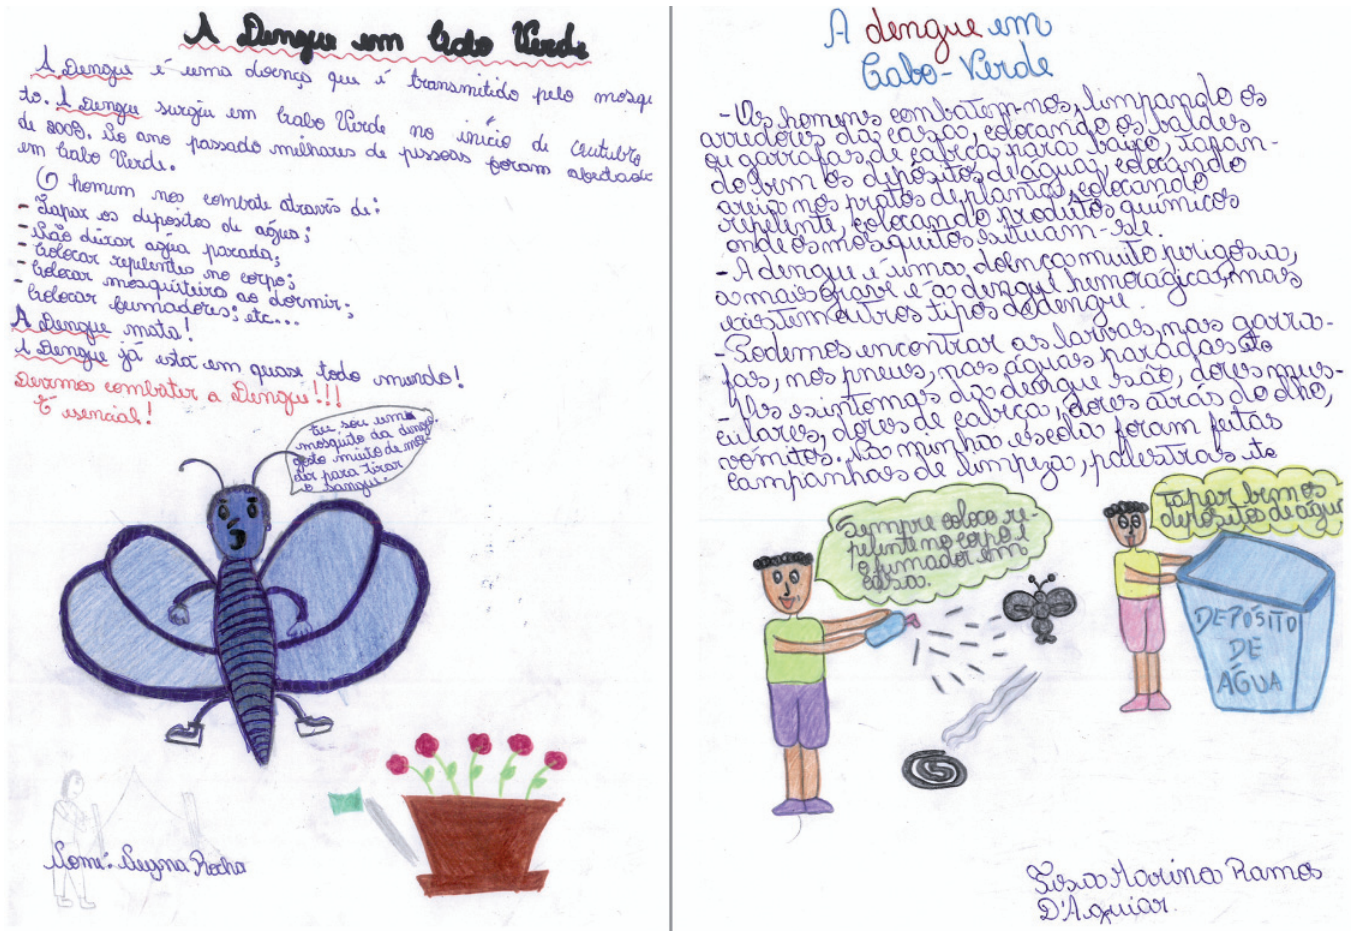 A Dengue em Cabo Verde
A Dengue é uma doença que é transmitido pelo mosqui
to. A Dengue surgiu em Cabo Verde no início de Outubro
de 2009. No ano passado milhares de pessoas foram afectado
em Cabo Verde.
O homem nos combate através de:
- Tapar os depósitos de água;
- Não deixar água parada;
- Colocar repelentes no corpo;
- Colocar mosquiteiro ao dormir;
- Colocar fumadores; etc...
A Dengue mata!
A Dengue já está em quase todo mundo!
Devemos combater a Dengue!!!
É esencial!
Eu sou um
mosquito da dengue
gosto muito de mor-
der para tirar
o sangue.
Nome: Suzna Rocha
A dengue em
Cabo-Verde
- Os homens combatem-nos, limpando os
arredores da casa, colocando os baldes
ou garrafas de cabeça para baixo, tapan-
do bem os depósitos de água, colocando
areia nos pratos de plantas, colocando
repelente, colocando produtos químicos
onde os mosquitos situam-se.
- A dengue é uma doença muito perigosa,
a mais grave é a dengue hemorágica, mas
existem outros tipos de dengue.
- Podemos encontrar as larbas, nas garra-
fas, nos pneus, nas águas paradas etc
- Os sintomas da dengue são, dores mus-
culares, dores de cabeça, dores atrás do olho,
vómitos. Na minha escola foram feitas
campanhas de limpeza, palestras etc
Sempre coloco re-
pelente no corpo e
o fumador em
casa.
Tapar bem os
depósitos de água
DEPÓSITO
DE
ÁGUA
Marina Ramos
D'Aguiar.